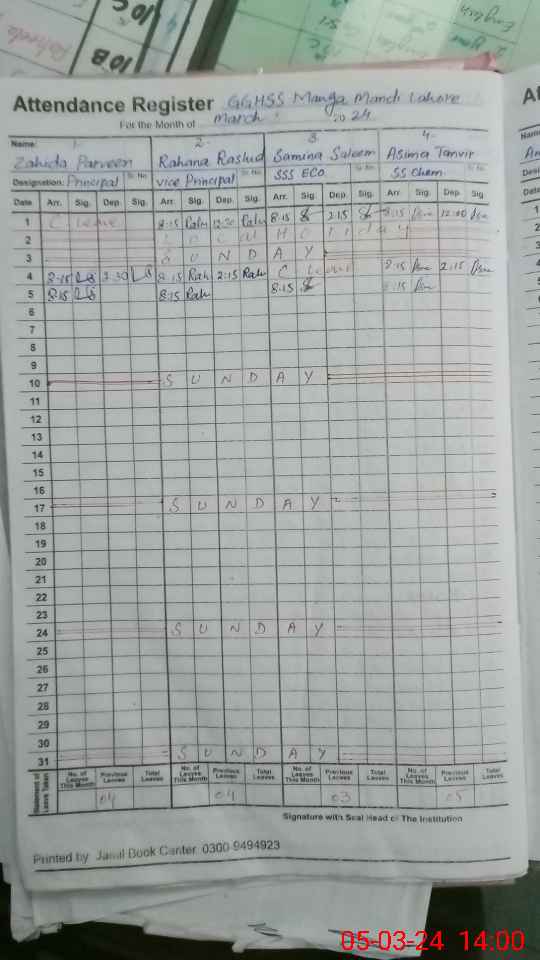 10C
10B
English
Attendance Register GGHSS Manga Mandi Lahore
For the Month of March 2024
1 2 3 4
Name: Zahida Parveen Rahana Rashid Samina Saleem Asima Tanvir
Designation: Principal Sr. No. vice Principal Sr. No. SSS ECO Sr. No. SS Chem Sr. No.
Date Arr. Sig. Dep. Sig. Arr. Sig. Dep. Sig. Arr. Sig. Dep. Sig. Arr. Sig. Dep. Sig
1 C Leave 8:15 12:30 8:15 2:15 8:15 12:00
2 Local Holiday
3 SUNDAY
4 8:15 8:15 2:15 C Leave 8:15 2:15
5 8:15 8:15 8:15 8:15
6
7
8
9
10 SUNDAY
11
12
13
14
15
16
17 SUNDAY
18
19
20
21
22
23
24 SUNDAY
25
26
27
28
29
30
31 SUNDAY
Statement of Leave Taken No. of Leaves This Month Previous Leaves Total Leaves No. of Leaves This Month Previous Leaves Total Leaves No. of Leaves This Month Previous Leaves Total Leaves No. of Leaves This Month Previous Leaves Total Leaves
04 04 03 05
Signature with Seal Head of The Institution
Printed by Book Canter 0300-9494923
05-03-24 14:00